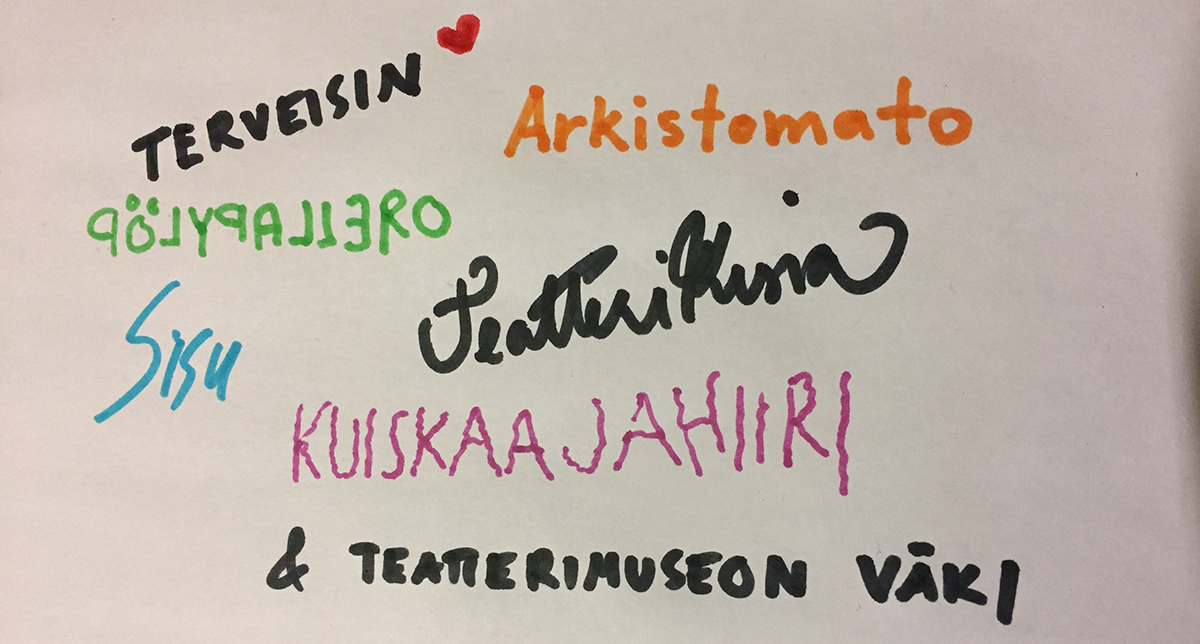 TERVEISIN ❤
Arkistomato
PÖLYPALLERO
TeatteriKissa
Sisu
KUISKAAJAHIIRI
& TEATTERIMUSEON VÄKI